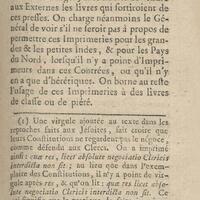 aux Externes les livres qui sortiroient de
ces presses. On charge néanmoins le Gé-
néral de voir s'il ne seroit pas à propos de
permettre ces Imprimeries pour les gran-
de & les petites Indes, & pour les Pays
du Nord, lorsqu'il n'y a point d'Impri-
meurs dans ces Contrées, ou qu'il n'y
en a que d'hérétiques. On borne au reste
l'usage de ces Imprimeries à des livres
de classe ou de piété.
(1) Une virgule ajoutée au texte dans les
reproches faits aux Jésuites, fait croire que
leurs Constitutions ne regardent pas le négoce,
comme défendu aux Clercs. On a imprimé
ainsi: quæ res, licet absolute negotiatio Clericis
interdicta non sit; au lieu que dans l'exem-
plaire des Constitutions, il n'y a point de vir-
gule après res, & qu'on lit: quæ res licet abso-
lute negotiatio Clericis interdicta non sit. Ce